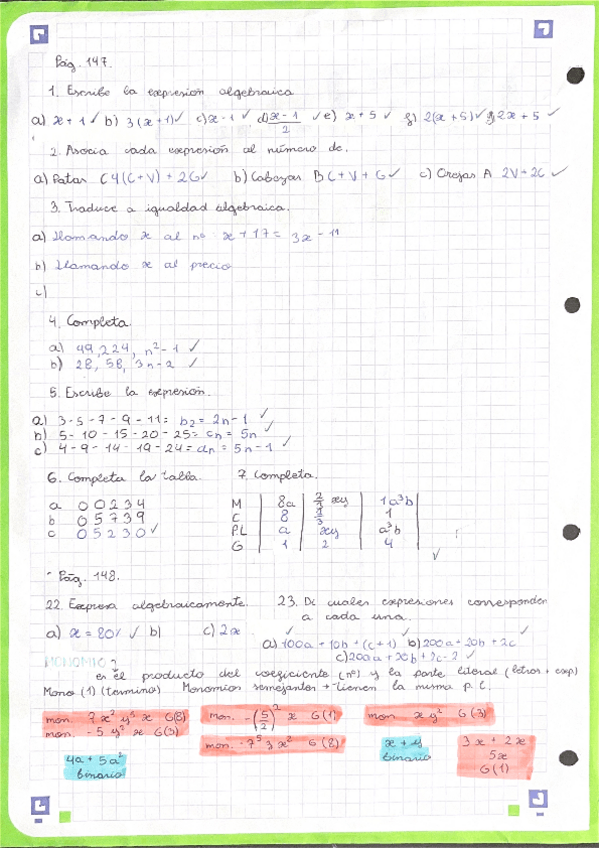 Pág. 147.
1. Escribe la expresión algebraica
a) x + 1 ✓ b) 3(x+1)✓ c) x - 1 ✓ d) x - 1 / 2 ✓ e) x + 5 ✓ f) 2(x+5)✓ g) 2x + 5 ✓
2. Asocia cada expresión al número de.
a) Patas C 4(C+V) + 2G✓ b) Cabezas B C + V + G ✓ c) Orejas A 2V + 2C ✓
3. Traduce a igualdad algebraica.
a) Llamando x al nº x + 17 = 3x - 11
b) Llamando x al precio
c)
4. Completa.
a) 49, 224, n² - 1 ✓
b) 28, 58, 3n - 2 ✓
5. Escribe la expresión.
a) 3 - 5 - 7 - 9 - 11 = b₂ = 2n - 1 ✓
b) 5 - 10 - 15 - 20 - 25 = cn = 5n ✓
c) 4 - 9 - 14 - 19 - 24 = dn = 5n - 1 ✓
6. Completa la tabla. 7. Completa.
a 0 0 2 3 4
b 0 5 7 3 9
c 0 5 2 3 0 ✓
M | 8a | xy | 1a³b |
C | 8 | | 1
PL | a | xy | a³b
G | 1 | 2 | 4
✓
Pág. 148.
22. Expresa algebraicamente. 23. Di cuales expresiones corresponden
a cada una.
a) x = 80% ✓ b) c) 2x
a) 100a + 10b + (c+1) ✓ b) 200a + 20b + 2c ✓
c) 200a + 20b + 2c - 2 ✓
MONOMIO?
es el producto del coeficiente (nº) y la parte literal (letras + exp)
Mono (1) (término) Monomios semejantes → tienen la misma p. l.
mon. 7x² y⁵ x G(8) mon. -(5/2)² x G(1) mon. xy² G(3)
mon. -5 y³ x G(3)
mon. -7⁵ 3x² G(2) x + y
binario 3x + 2x
5x
G(1)
4a + 5a²
binario